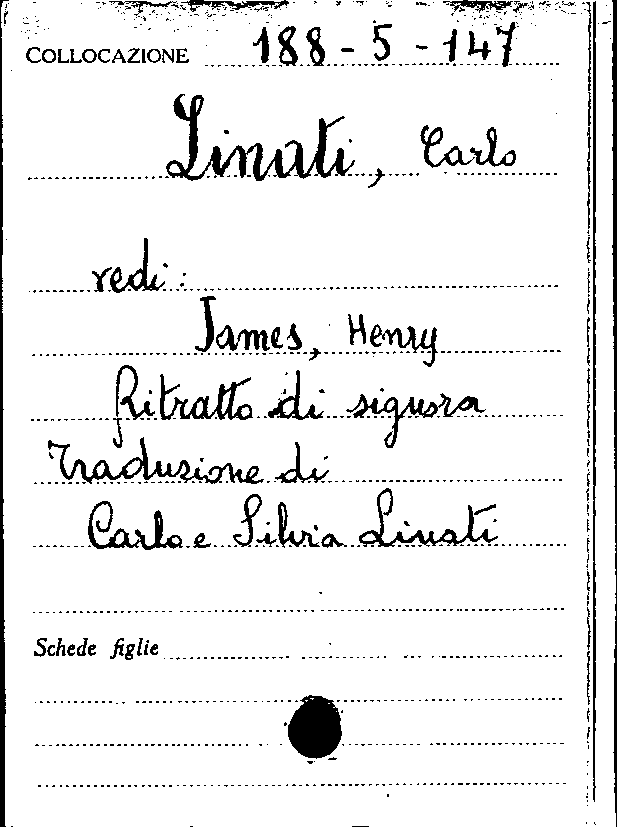 COLLOCAZIONE 188-5-147
Linati, Carlo
vedi:
James, Henry
Ritratto di signora
Traduzione di
Carlo e Silvia Linati
Schede figlie